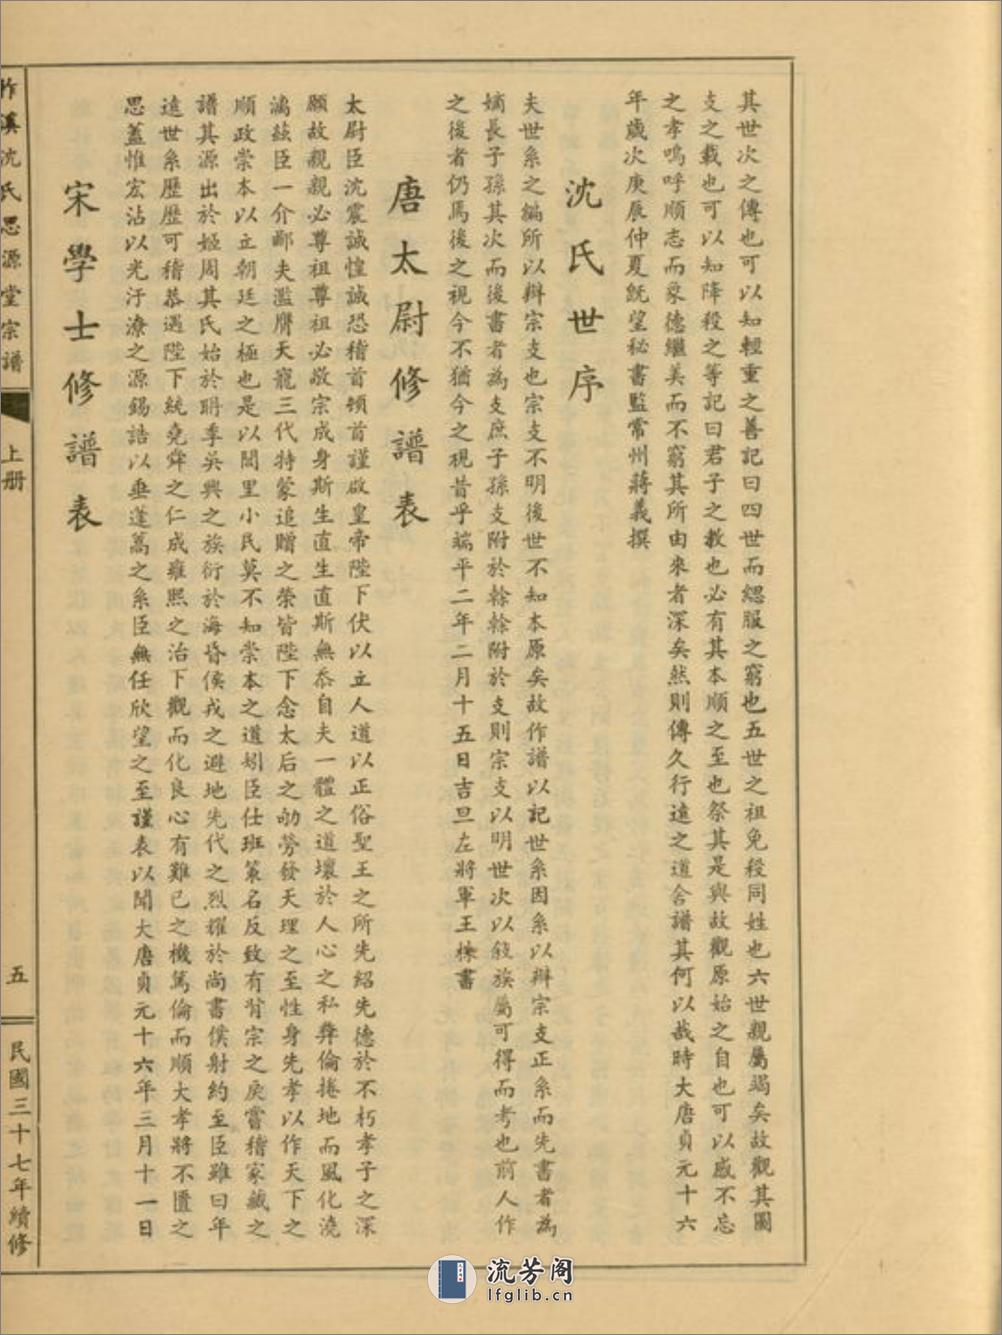 其世次之傳也可以知輕重之善記曰四世而緦服之窮也五世之祖免殺同姓也六世親屬竭矣故觀其圖
支之載也可以知降殺之等記曰君子之教也必有其本順之至也祭其是與故觀原始之自也可以感不忘
之孝嗚呼順志而象德繼美而不窮其所由來者深矣然則傳久行遠之道舍譜其何以哉時大唐貞元十六
年歲次庚辰仲夏旣望秘書監常州蔣義撰
沈氏世序
夫世系之編所以辯宗支也宗支不明後世不知本原矣故作譜以記世系因系以辯宗支正系而先書者為
嫡長子孫其次而後書者為支庶子孫支附於榦榦附於支則宗支以明世次以敍族屬可得而考也前人作
之後者仍焉後之視今不猶今之視昔乎端平二年二月十五日吉旦左將軍王棟書
唐太尉修譜表
太尉臣沈震誠惶誠恐稽首頓首謹啟皇帝陛下伏以立人道以正俗聖王之所先紹先德於不朽孝子之深
願故親親必尊祖尊祖必敬宗成身斯生直生直斯無忝自夫一體之道壞於人心之私彝倫捲地而風化澆
漓茲臣一介鄙夫濫膺天寵三代特蒙追贈之榮皆陛下念太后之劬勞發天理之至性身先孝以作天下之
順政崇本以立朝廷之極也是以閭里小民莫不知崇本之道矧臣仕班策名反致有背宗之戾嘗稽家藏之
譜其源出於姬周其氏始於聃季吳興之族衍於海昏侯戎之避地先代之烈耀於尚書僕射約至臣雖曰年
遠世系歷歷可稽恭遇陛下統堯舜之仁成雍熙之治下觀而化良心有難已之機篤倫而順大孝將不匱之
思蓋惟宏沾以光汙潦之源錫誥以垂蓬蒿之系臣無任欣望之至謹表以聞大唐貞元十六年三月十一日
宋學士修譜表
竹溪沈氏思源堂宗譜
上册
五
民國三十七年續修
流芳阁
lfglib.cn